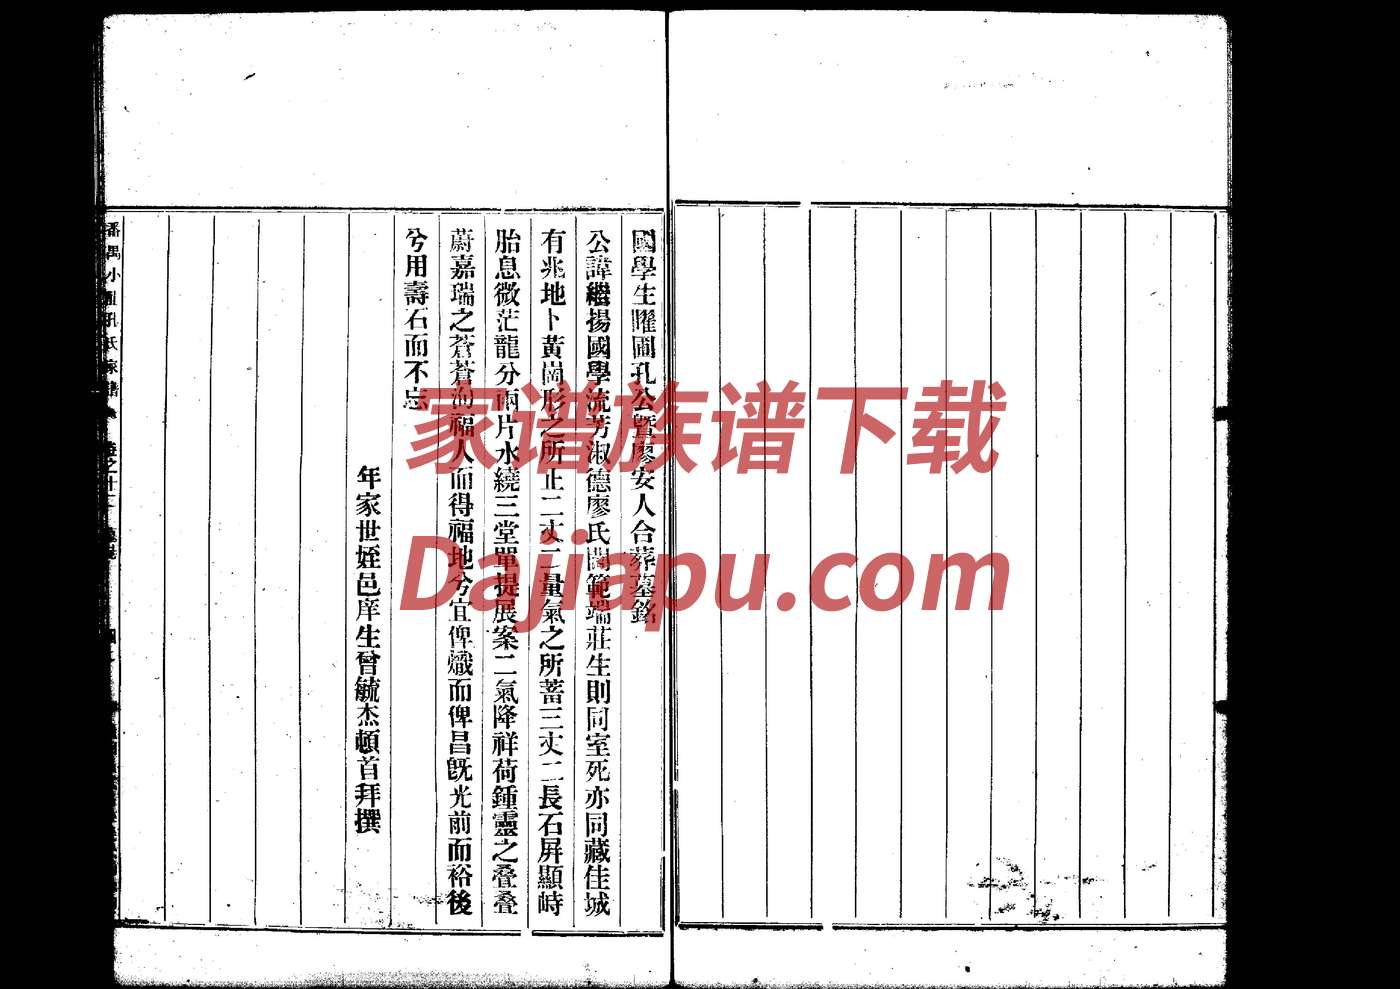 國學生矅圃孔公暨廖安人合葬墓銘
公諱繼揚國學流芳淑德廖氏閫範端莊生則同室死亦同藏佳城
有兆地卜黃崗形之所止二丈二量氣之所蓄三丈二長石屏顯峙
胎息微茫龍分兩片水繞三堂單提展案二氣降祥荷鍾靈之叠叠
蔚嘉瑞之蒼蒼洵福人而得福地兮宜俾熾而俾昌旣光前而裕後
兮用壽石而不忘
年家世姪邑庠生曾毓杰頓首拜撰
番禺小龍孔氏家譜
卷之十二
家谱族谱下载
Dajiapu.com